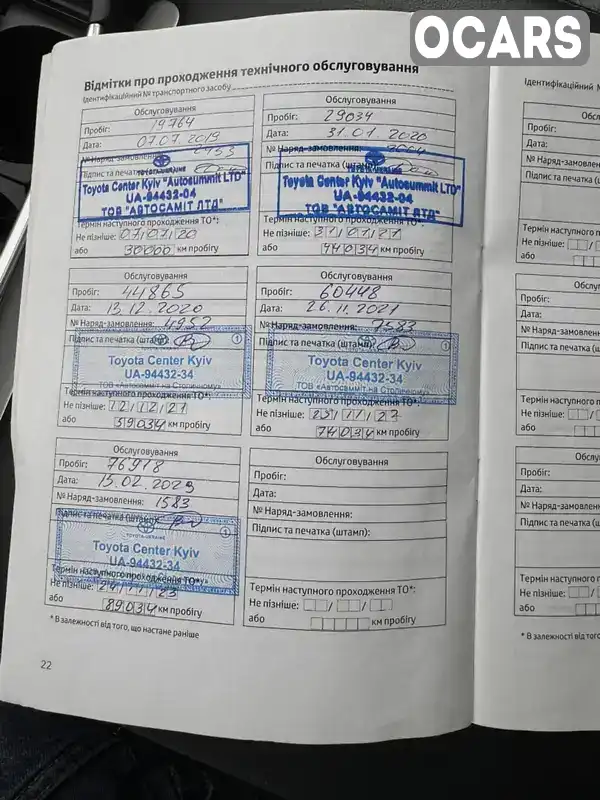 OCARS
Відмітки про проходження технічного обслуговування
Ідентифікаційний № транспортного засобу
Обслуговування
Пробіг: 19764
Дата: 07.07.2019
№ Наряд-замовлення:
Підпис та печатка
TOYOTA-UKRAINE
Toyota Center Kyiv "Autosummit LTD"
UA-94432-04
ТОВ "АВТОСАМІТ ЛТД"
Термін наступного проходження ТО*:
Не пізніше: 07/07/20
або 30000 км пробігу
Обслуговування
Пробіг: 29034
Дата: 31.01.2020
№ Наряд-замовлення:
Підпис та печатка (штамп):
Toyota Center Kyiv "Autosummit LTD"
UA-94432-04
ТОВ "АВТОСАМІТ ЛТД"
Термін наступного проходження ТО*:
Не пізніше: 31/01/21
або 44034 км пробігу
Обслуговування
Пробіг: 44865
Дата: 13.12.2020
№ Наряд-замовлення: 4952
Підпис та печатка (штамп):
1
Toyota Center Kyiv
UA-94432-34
ТОВ «Автосамміт на Столичному»
Термін наступного проходження ТО*:
Не пізніше: 12/12/21
або 59034 км пробігу
Обслуговування
Пробіг: 60448
Дата: 26.11.2021
№ Наряд-замовлення: 7583
Підпис та печатка (штамп):
1
Toyota Center Kyiv
UA-94432-34
ТОВ «Автосамміт на Столичному»
Термін наступного проходження ТО*:
Не пізніше:
або 74034 км пробігу
Обслуговування
Пробіг: 76918
Дата: 15.02.2023
№ Наряд-замовлення: 1583
Підпис та печатка (штамп):
1
TOYOTA-UKRAINE
Toyota Center Kyiv
UA-94432-34
Термін наступного проходження ТО*:
Не пізніше:
або 89034 км пробігу
Обслуговування
Пробіг:
Дата:
№ Наряд-замовлення:
Підпис та печатка (штамп):
Термін наступного проходження ТО*:
Не пізніше:
або км пробігу
* В залежності від того, що настане раніше
22
Ідентифікаційний №
Пробіг:
Дата:
№ Наряд-замовлення
Підпис та печатка (
Термін наступного
Не пізніше:
або
Пробіг:
Дата:
№ Наряд-замовлення
Підпис та печатка (ш
Термін наступного п
Не пізніше:
або
Пробіг:
Дата:
№ Наряд-замовлення
Підпис та печатка (ш
Термін наступного п
Не пізніше:
або
* В залежності від того